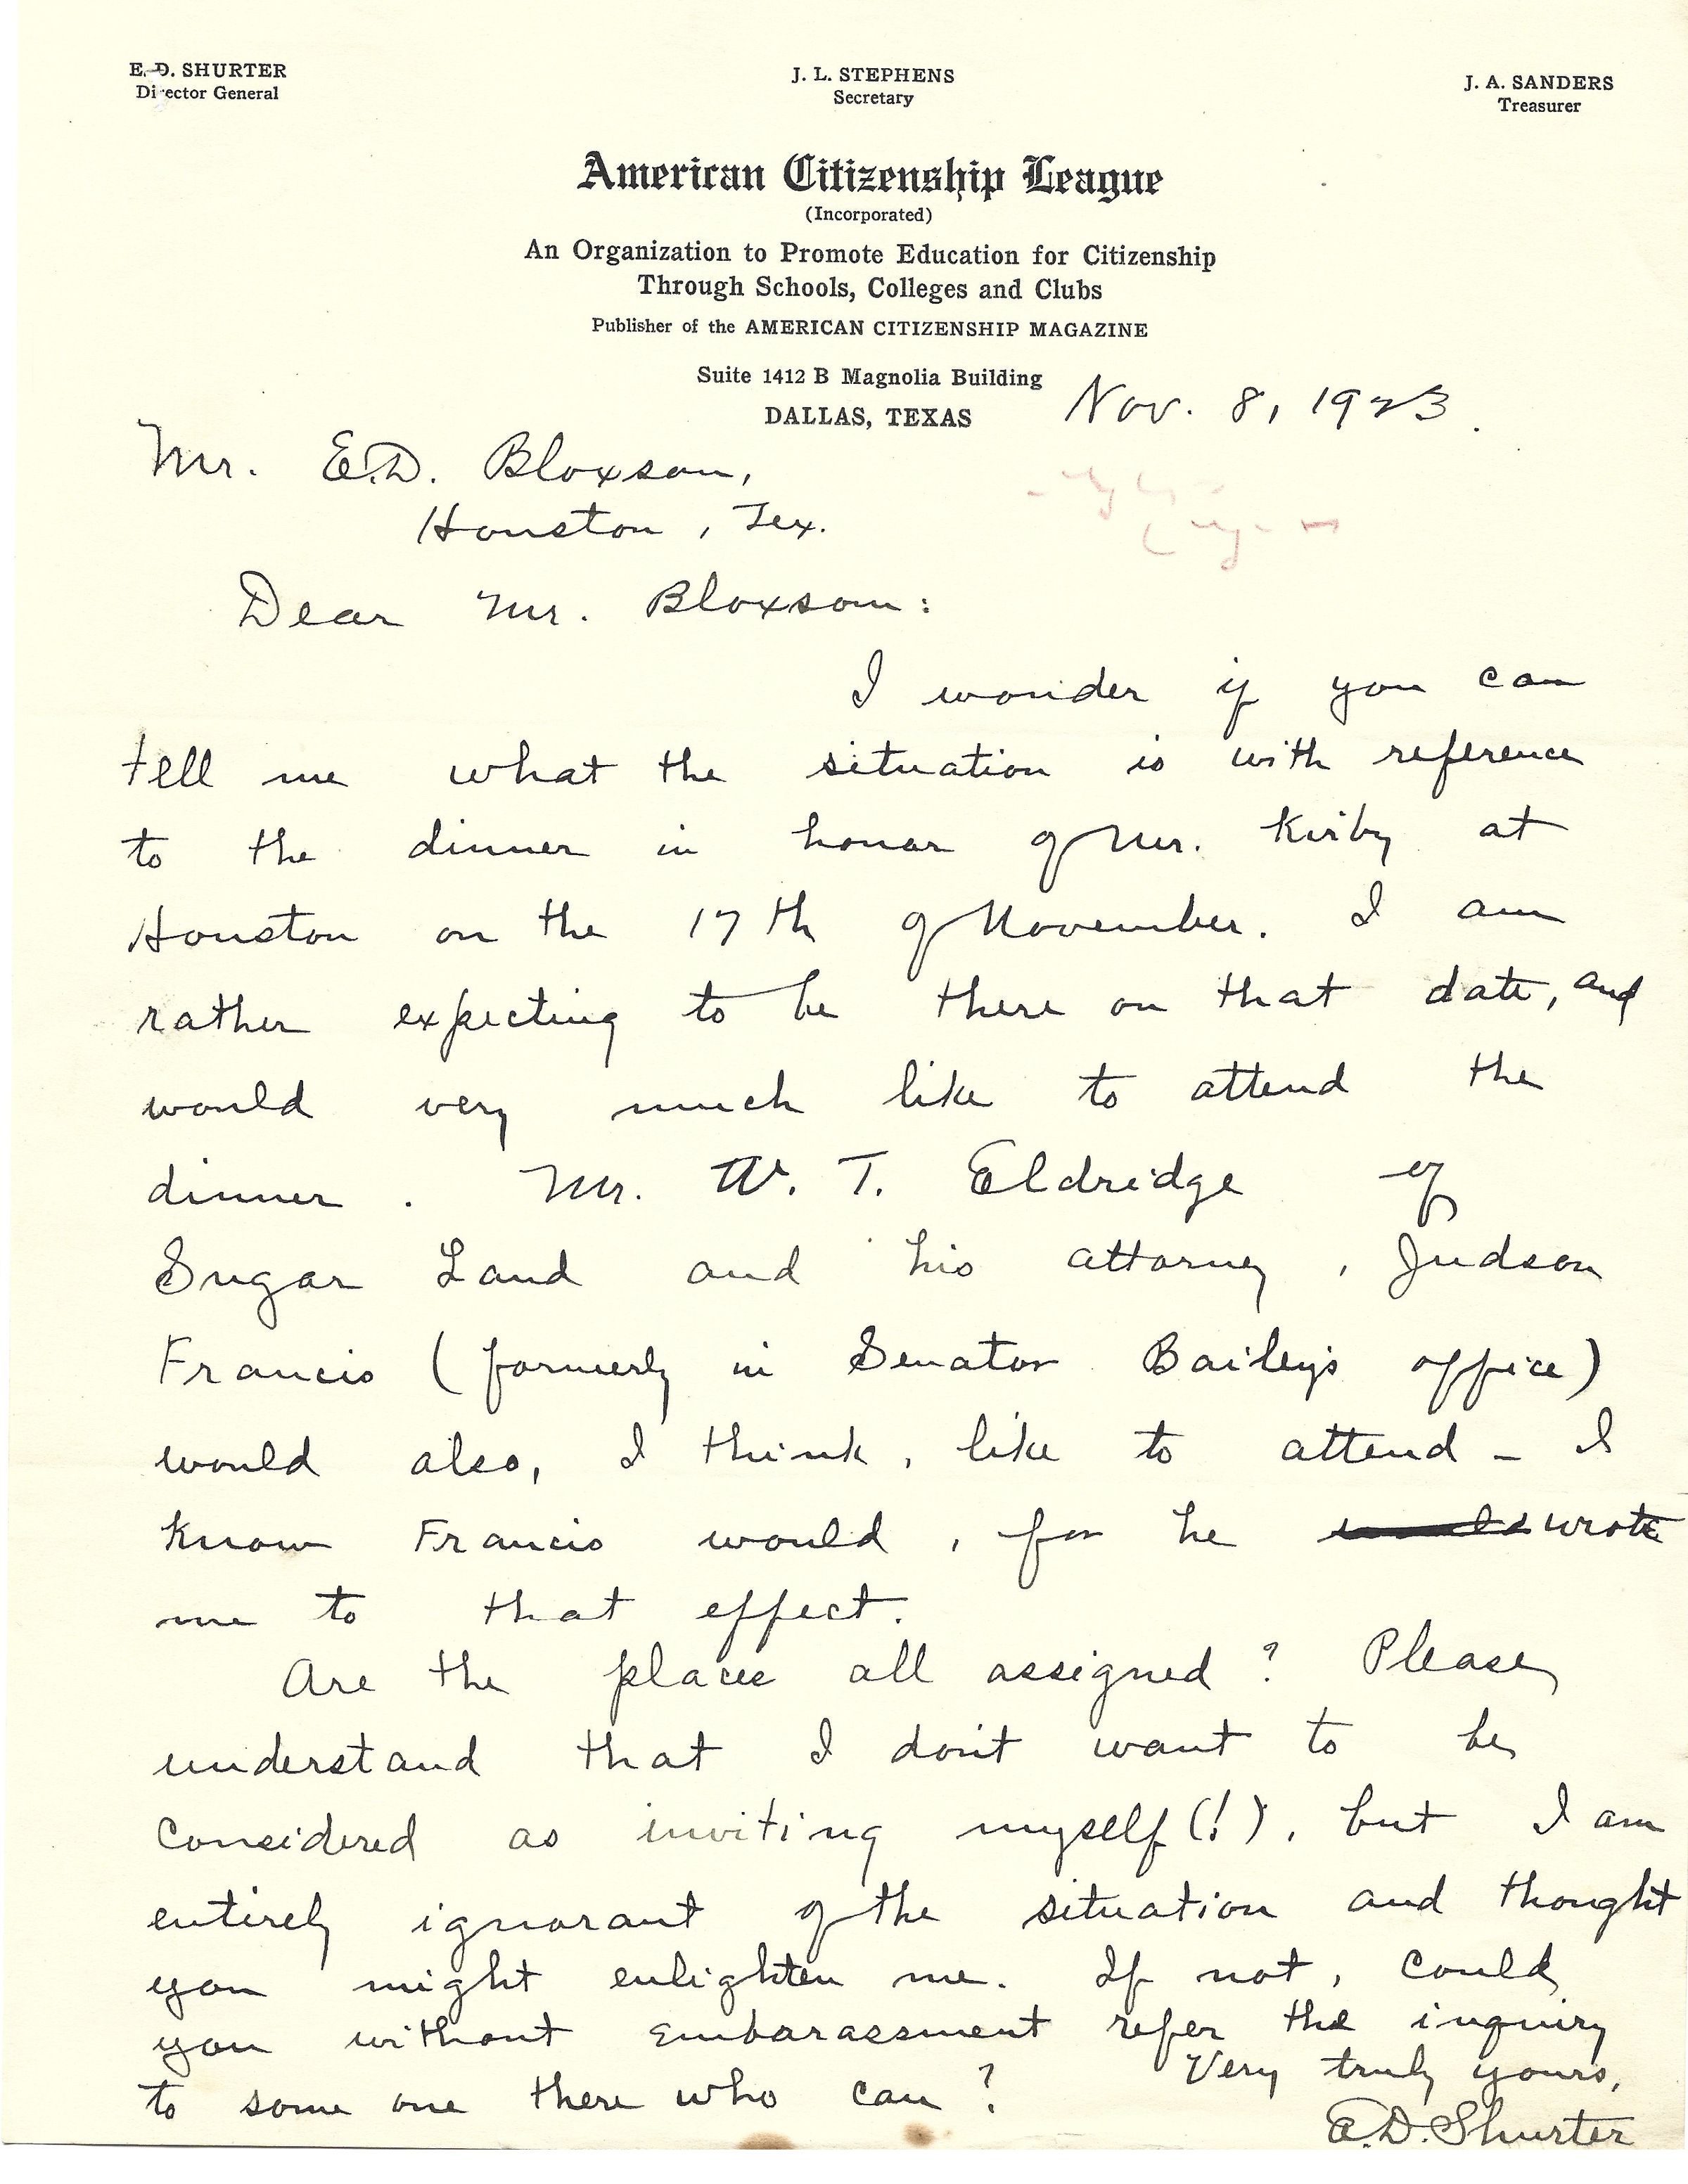 E. D. SHURTER
Director General
J. L. STEPHENS
Secretary
J. A. SANDERS
Treasurer
American Citizenship League
(Incorporated)
An Organization to Promote Education for Citizenship
Through Schools, Colleges and Clubs
Publisher of the AMERICAN CITIZENSHIP MAGAZINE
Suite 1412 B Magnolia Building
DALLAS, TEXAS
Nov. 8, 1923.
Mr. E.D. Bloxsom,
Houston, Tex.
Dear Mr. Bloxsom:
I wonder if you can
tell me what the situation is with reference
to the dinner in honor of Mr. Kirby at
Houston on the 17th of November. I am
rather expecting to be there on that date, and
would very much like to attend the
dinner. Mr. W. T. Eldridge of
Sugar Land and his attorney, Judson
Francis (formerly in Senator Bailey's office)
would also, I think, like to attend - I
know Francis would, for he wrote
me to that effect.
Are the places all assigned? Please
understand that I don't want to be
considered as inviting myself(!), but I am
entirely ignorant of the situation and thought
you might enlighten me. If not, could
you without embarassment refer the inquiry
to some one there who can?
Very truly yours,
E.D. Shurter